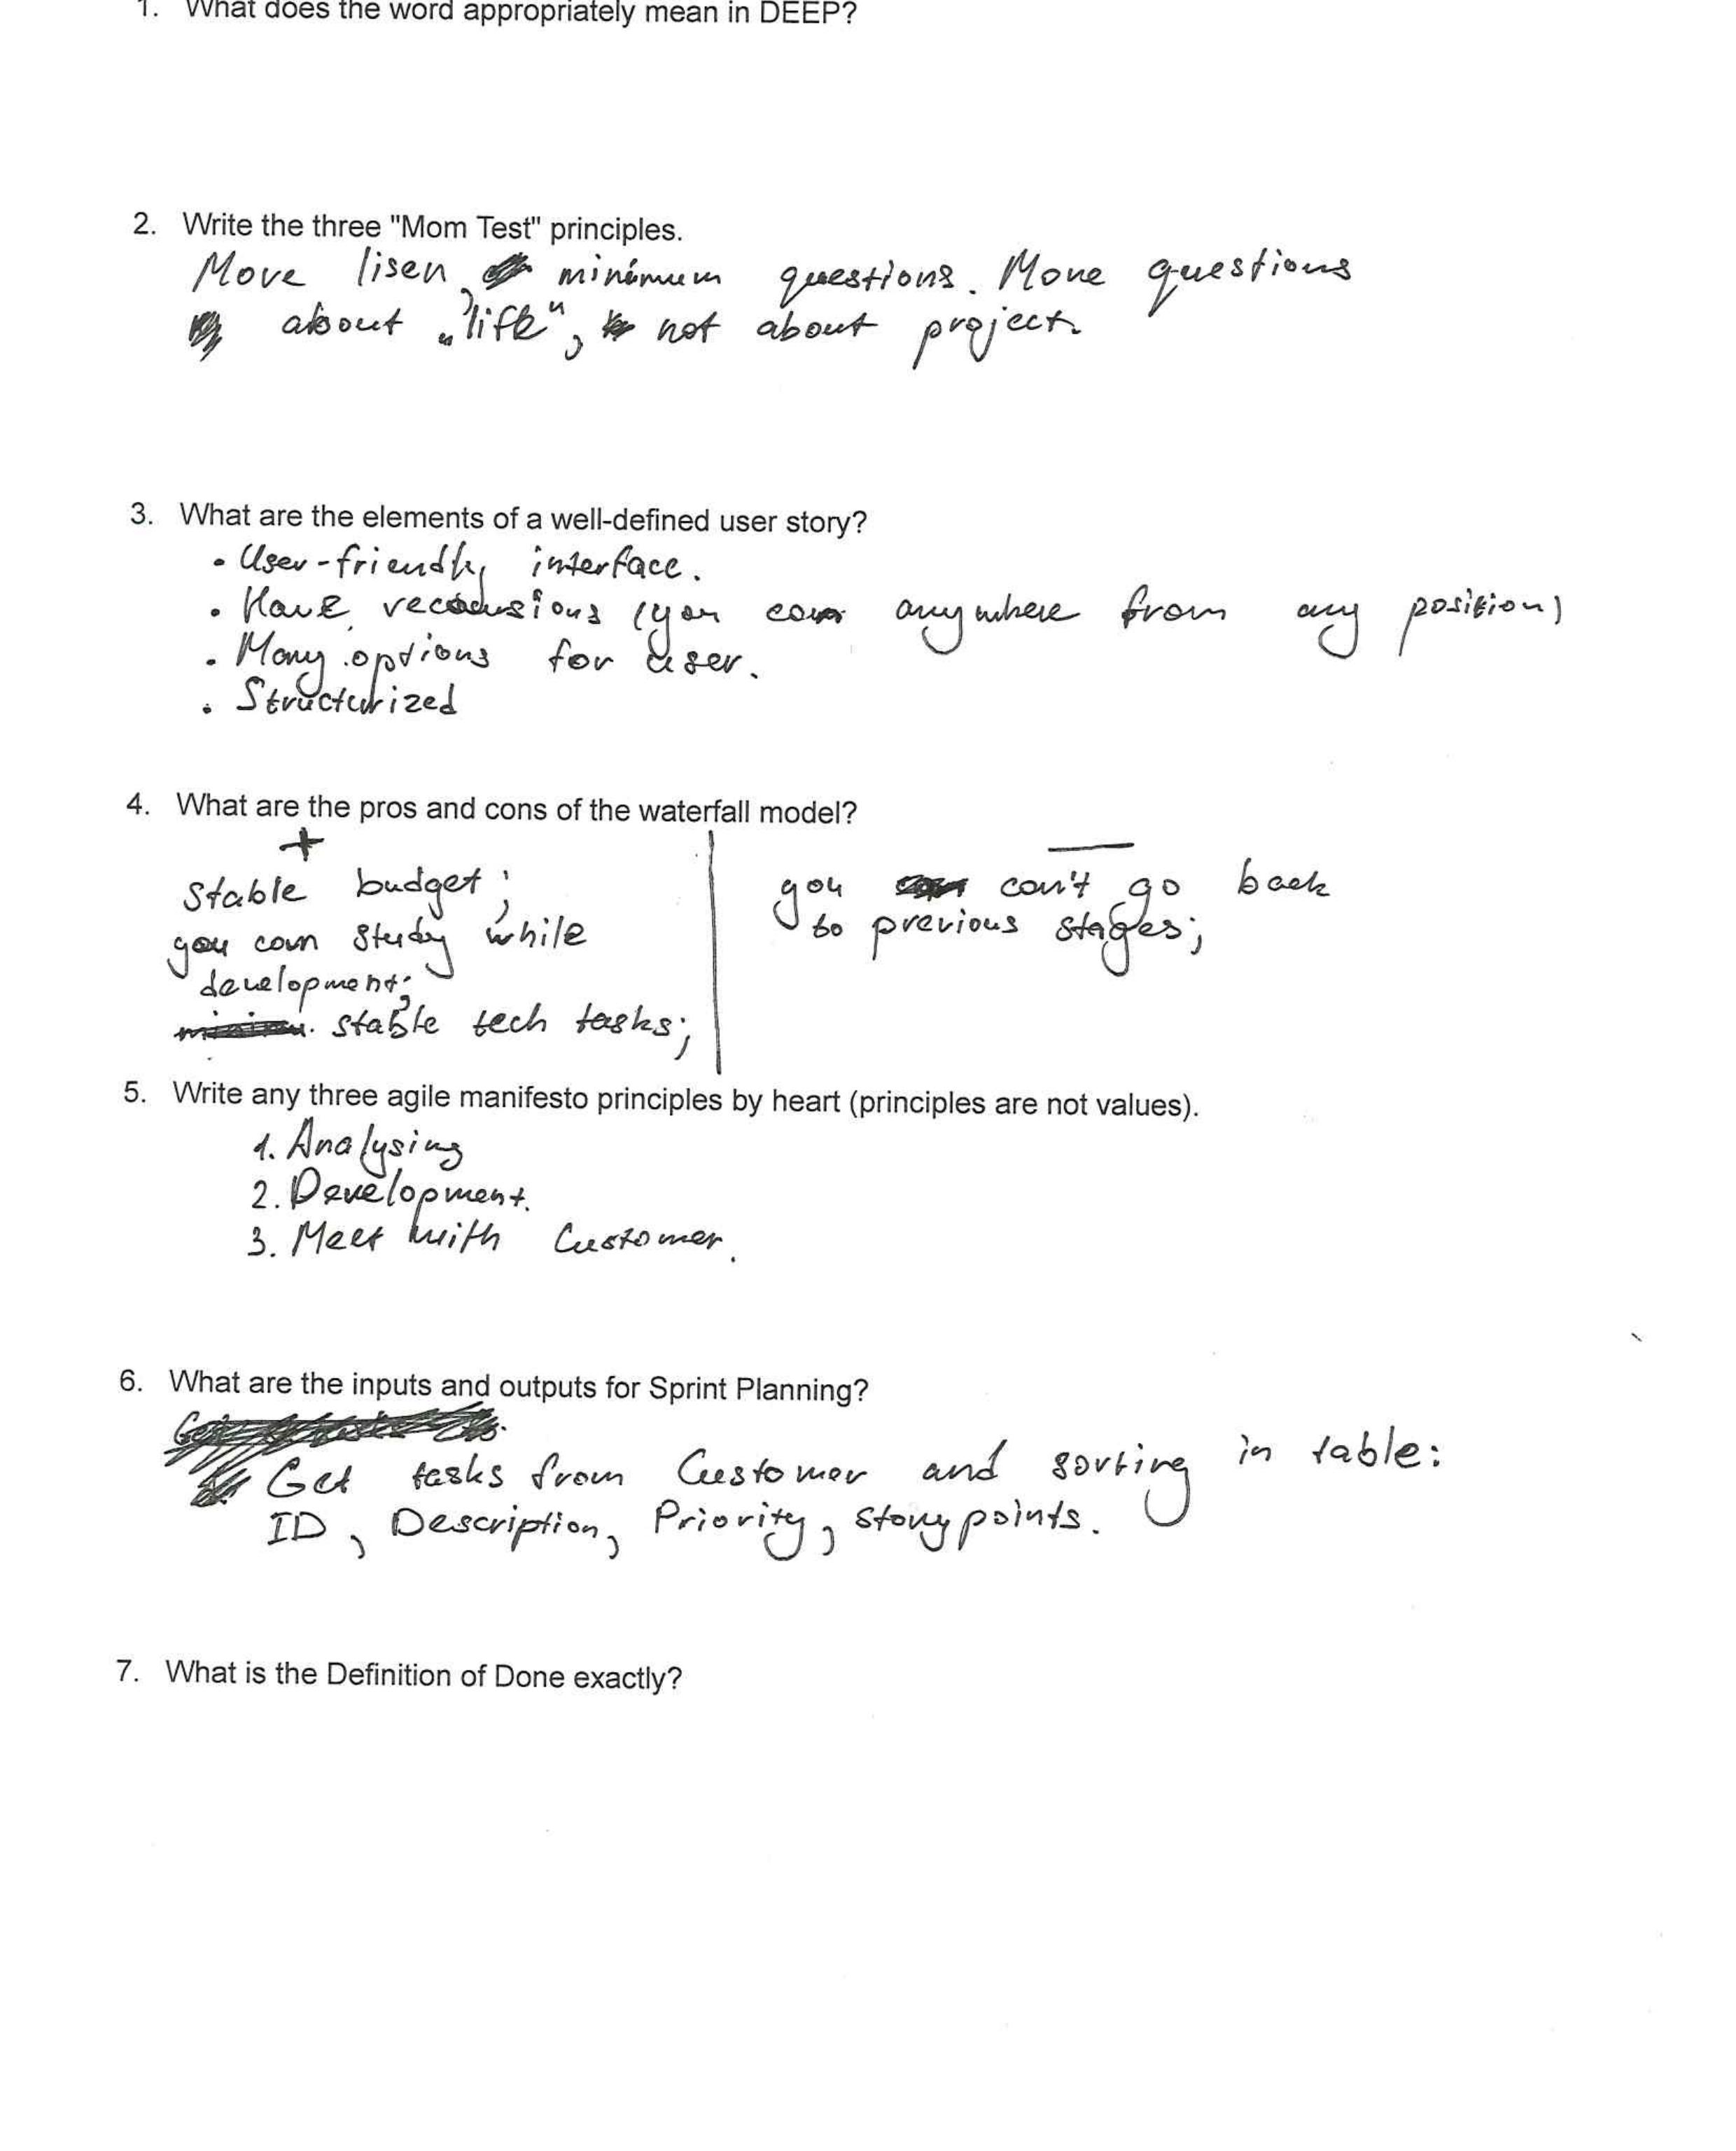 1. What does the word appropriately mean in DEEP?
2. Write the three "Mom Test" principles.
More lisen, minimum questions. More questions
about „life", not about project.
3. What are the elements of a well-defined user story?
• User-friendly interface.
• Have (you can anywhere from any position)
• Many options for user.
• Structurized
4. What are the pros and cons of the waterfall model?
+ —
stable budget; you can't go back
you can study while to previous stages;
development;
stable tech tasks;
5. Write any three agile manifesto principles by heart (principles are not values).
1. Analysing
2. Development.
3. Meet with Customer.
6. What are the inputs and outputs for Sprint Planning?
Get tasks from Customer and sorting in table:
ID, Description, Priority, story points.
7. What is the Definition of Done exactly?